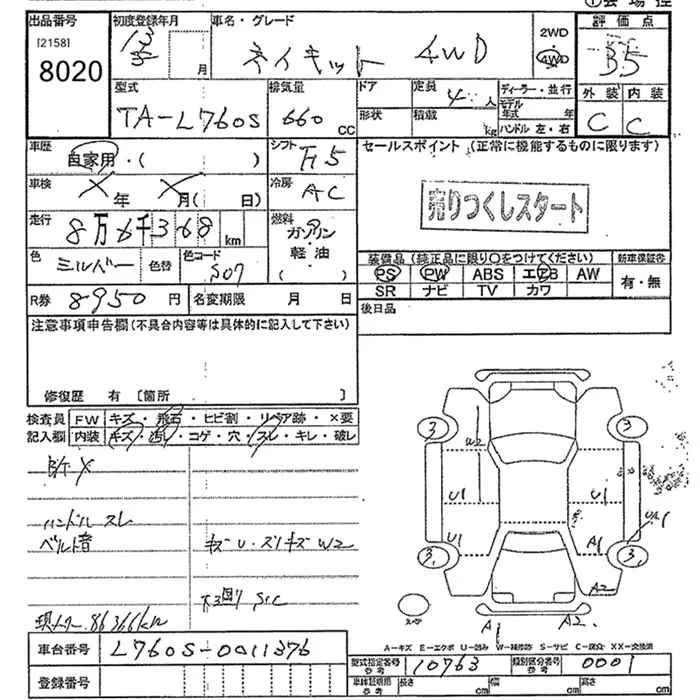 出品番号 初度登録年月 車名・グレード 2WD 評価点
[2158] 13 月 ネイキット 4WD 4WD B5
8020
型式 排気量 ドア 定員 4 人 ディーラー・並行 外装 内装
TA-L760S 660 cc 形状 積載 kg モデル年式 年 C C
ハンドル 左・右
車歴 自家用・( ) シフト F5 セールスポイント (正常に機能するものに限ります)
車検 X 年 X 月( 日) 冷房 AC
売りつくしスタート
走行 8万6千368 km 燃料 ガソリン
軽油
( )
色 シルバー 色替 色コード S07
装備品(純正品に限り○をつけてください) 新車保証書
PS PW ABS エアB AW 有・無
SR ナビ TV カワ
R券 8950 円 名変期限 月 日 後日品
注意事項申告欄(不具合内容等は具体的に記入して下さい)
修復歴 有 [箇所 ]
検査員 FW キズ・飛石・ヒビ割・リペア跡・×要
記入欄 内装 キズ・汚れ・コゲ・穴・スレ・キレ・破レ
ハンドル スレ
ベルト音
キズ U・スリキズ W2
現メーター 86366km
3 3
W2
U1 U1
U1 A1
3 3
A2
A1 A2
A=キズ E=エクボ U=凹み W=補修跡 S=サビ C=腐食 XX=交換済
車台番号 L760S-0011376
型式指定番号 参考 10763 類別区分番号 参考 0001
登録番号 車庫証明用 参考 長さ cm 幅 cm 高さ cm